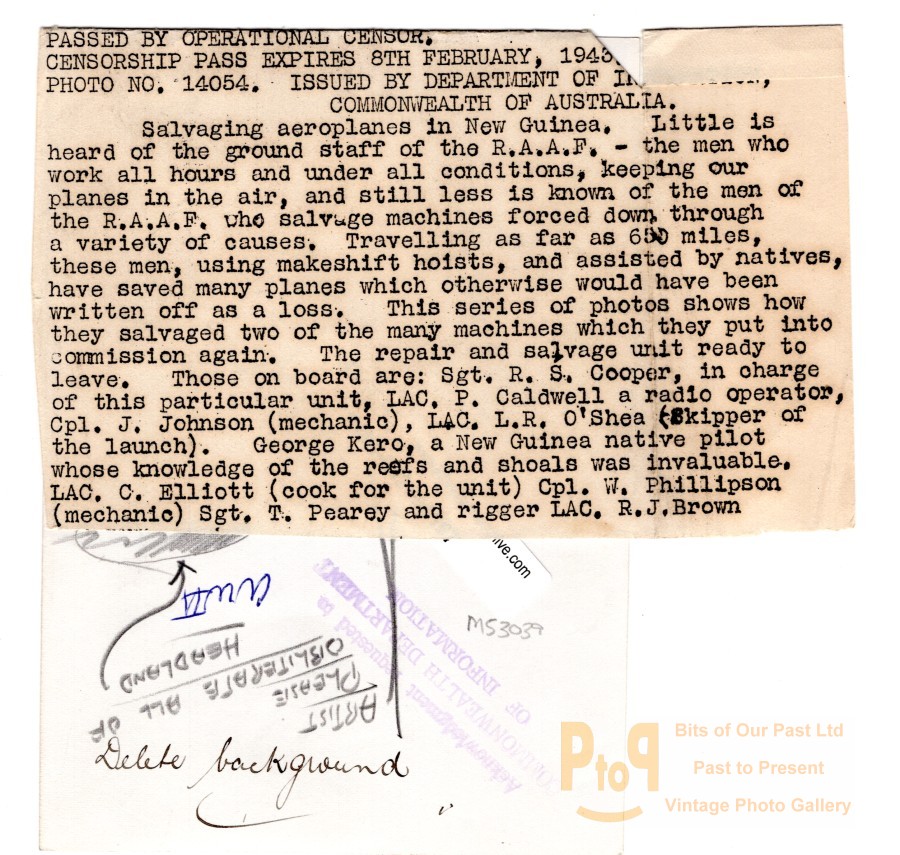 PASSED BY OPERATIONAL CENSOR.
CENSORSHIP PASS EXPIRES 8TH FEBRUARY, 1943
PHOTO NO. 14054. ISSUED BY DEPARTMENT OF
COMMONWEALTH OF AUSTRALIA.
Salvaging aeroplanes in New Guinea. Little is
heard of the ground staff of the R.A.A.F. - the men who
work all hours and under all conditions, keeping our
planes in the air, and still less is known of the men of
the R.A.A.F. who salvage machines forced down through
a variety of causes. Travelling as far as 650 miles,
these men, using makeshift hoists, and assisted by natives,
have saved many planes which otherwise would have been
written off as a loss. This series of photos shows how
they salvaged two of the many machines which they put into
commission again. The repair and salvage unit ready to
leave. Those on board are: Sgt. R. S. Cooper, in charge
of this particular unit, LAC. P. Caldwell a radio operator,
Cpl. J. Johnson (mechanic), LAC. L.R. O'Shea (Skipper of
the launch). George Kero, a New Guinea native pilot
whose knowledge of the reefs and shoals was invaluable.
LAC. C. Elliott (cook for the unit) Cpl. W. Phillipson
(mechanic) Sgt. T. Pearey and rigger LAC. R.J.Brown
ive.com
MS3039
ARTIST
PLEASE
OBLITERATE ALL OF
HEADLAND
Acknowledgment requested to
COMMONWEALTH DEPARTMENT
OF INFORMATION
Delete background
PtoP
Bits of Our Past Ltd
Past to Present
Vintage Photo Gallery